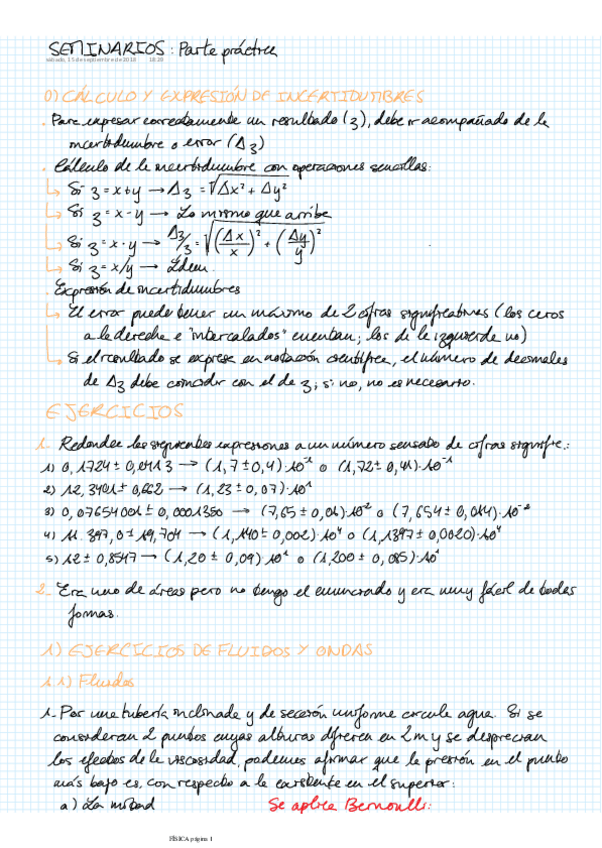 SEMINARIOS: Parte práctica
sábado, 15 de septiembre de 2018 18:28
0) CÁLCULO Y EXPRESIÓN DE INCERTIDUMBRES
· Para expresar correctamente un resultado (z), debe ir acompañado de la
incertidumbre o error (Δz)
· Cálculo de la incertidumbre con operaciones sencillas:
↳ Si z = x+y → Δz = √(Δx² + Δy²)
↳ Si z = x - y → Lo mismo que arriba
↳ Si z = x · y → Δz/z = √((Δx/x)² + (Δy/y)²)
↳ Si z = x/y → Ídem.
· Expresión de incertidumbres
↳ El error puede tener un máximo de 2 cifras significativas (los ceros
a la derecha e "intercalados" cuentan; los de la izquierda no)
↳ Si el resultado se expresa en notación científica, el número de decimales
de Δz debe coincidir con el de z; si no, no es necesario.
EJERCICIOS
1. Redondee las siguientes expresiones a un número sensato de cifras signific.:
1) 0,1724 ± 0,0413 → (1,7 ± 0,4)·10⁻¹ o (1,72 ± 0,41)·10⁻¹
2) 12,3401 ± 0,662 → (1,23 ± 0,07)·10¹
3) 0,07654001 ± 0,0001350 → (7,65 ± 0,01)·10⁻² o (7,654 ± 0,014)·10⁻²
4) 11.397,0 ± 19,704 → (1,140 ± 0,002)·10⁴ o (1,1397 ± 0,0020)·10⁴
5) 12 ± 0,8547 → (1,20 ± 0,09)·10¹ o (1,200 ± 0,085)·10¹
2. Era uno de áreas pero no tengo el enunciado y era muy fácil de todas
formas.
1) EJERCICIOS DE FLUIDOS Y ONDAS
1.1) Fluidos
1- Por una tubería inclinada y de sección uniforme circula agua. Si se
consideran 2 puntos cuyas alturas difieren en 2 m y se desprecian
los efectos de la viscosidad, podemos afirmar que la presión en el punto
más bajo es, con respecto a la existente en el superior:
a) La mitad
Se aplica Bernoulli:
FÍSICA página 1